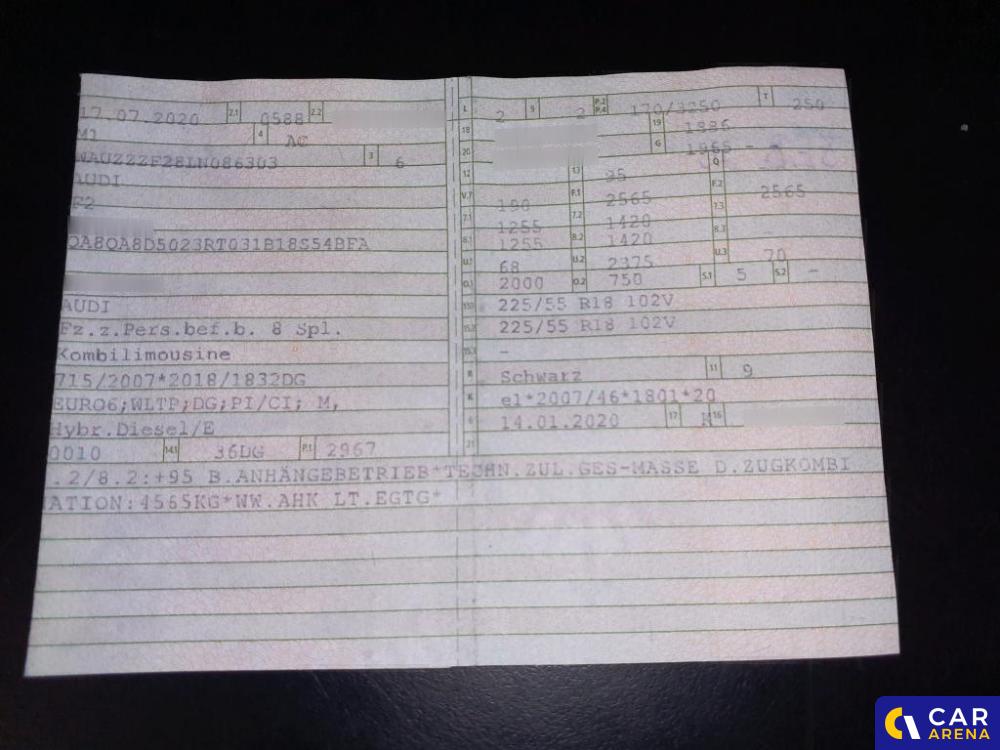 17.07.2020 2.1 0588 2.2
M1 4 AC
WAUZZZF28LN086303 3 6
AUDI
F2
QA8QA8D5023RT031B18S54BFA
AUDI
Fz.z.Pers.bef.b. 8 Spl.
Kombilimousine
715/2007*2018/1832DG
EURO6;WLTP;DG;PI/CI; M,
Hybr.Diesel/E
0010 14.1 36DG P.1 2967
L 2 9 2 P.2 P.4 170/3250 T 250
18 19 1886
20 G 1965 -
12 13 95 Q
V.7 190 F.1 2565 F.2 2565
7.1 1255 7.2 1420 7.3
8.1 1255 8.2 1420 8.3 -
U.1 68 U.2 2375 U.3 70
O.1 2000 O.2 750 S.1 5 S.2 -
15.1 225/55 R18 102V
15.2 225/55 R18 102V
15.3 -
R Schwarz 11 9
K e1*2007/46*1801*20
6 14.01.2020 17 K 16
21
.2/8.2:+95 B.ANHÄNGEBETRIEB*TECHN.ZUL.GES-MASSE D.ZUGKOMBI
ATION:4565KG*WW.AHK LT.EGTG*
CAR
ARENA